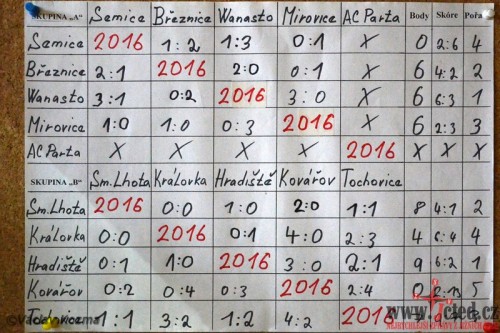 SKUPINA „A" Semice Březnice Wanasto Mirovice AC Parta Body Skóre Pořa
Semice 2016 1:2 1:3 0:1 X 0 2:6 4
Březnice 2:1 2016 2:0 0:1 X 6 4:2 2
Wanasto 3:1 0:2 2016 3:0 X 6 6:3 1
Mirovice 1:0 1:0 0:3 2016 X 6 2:3 3
AC Parta X X X X 2016 X X X
SKUPINA „B" Sm.Lhota Královka Hradiště Kovářov Tochovice
Sm.Lhota 2016 0:0 1:0 2:0 1:1 8 4:1 2
Královka 0:0 2016 0:1 4:0 2:3 4 6:4 4
Hradiště 0:1 1:0 2016 3:0 2:1 9 6:2 1
Kovářov 0:2 0:4 0:3 2016 2:4 0 5
Tochovice 1:1 3:2 1:2 4:2 2016